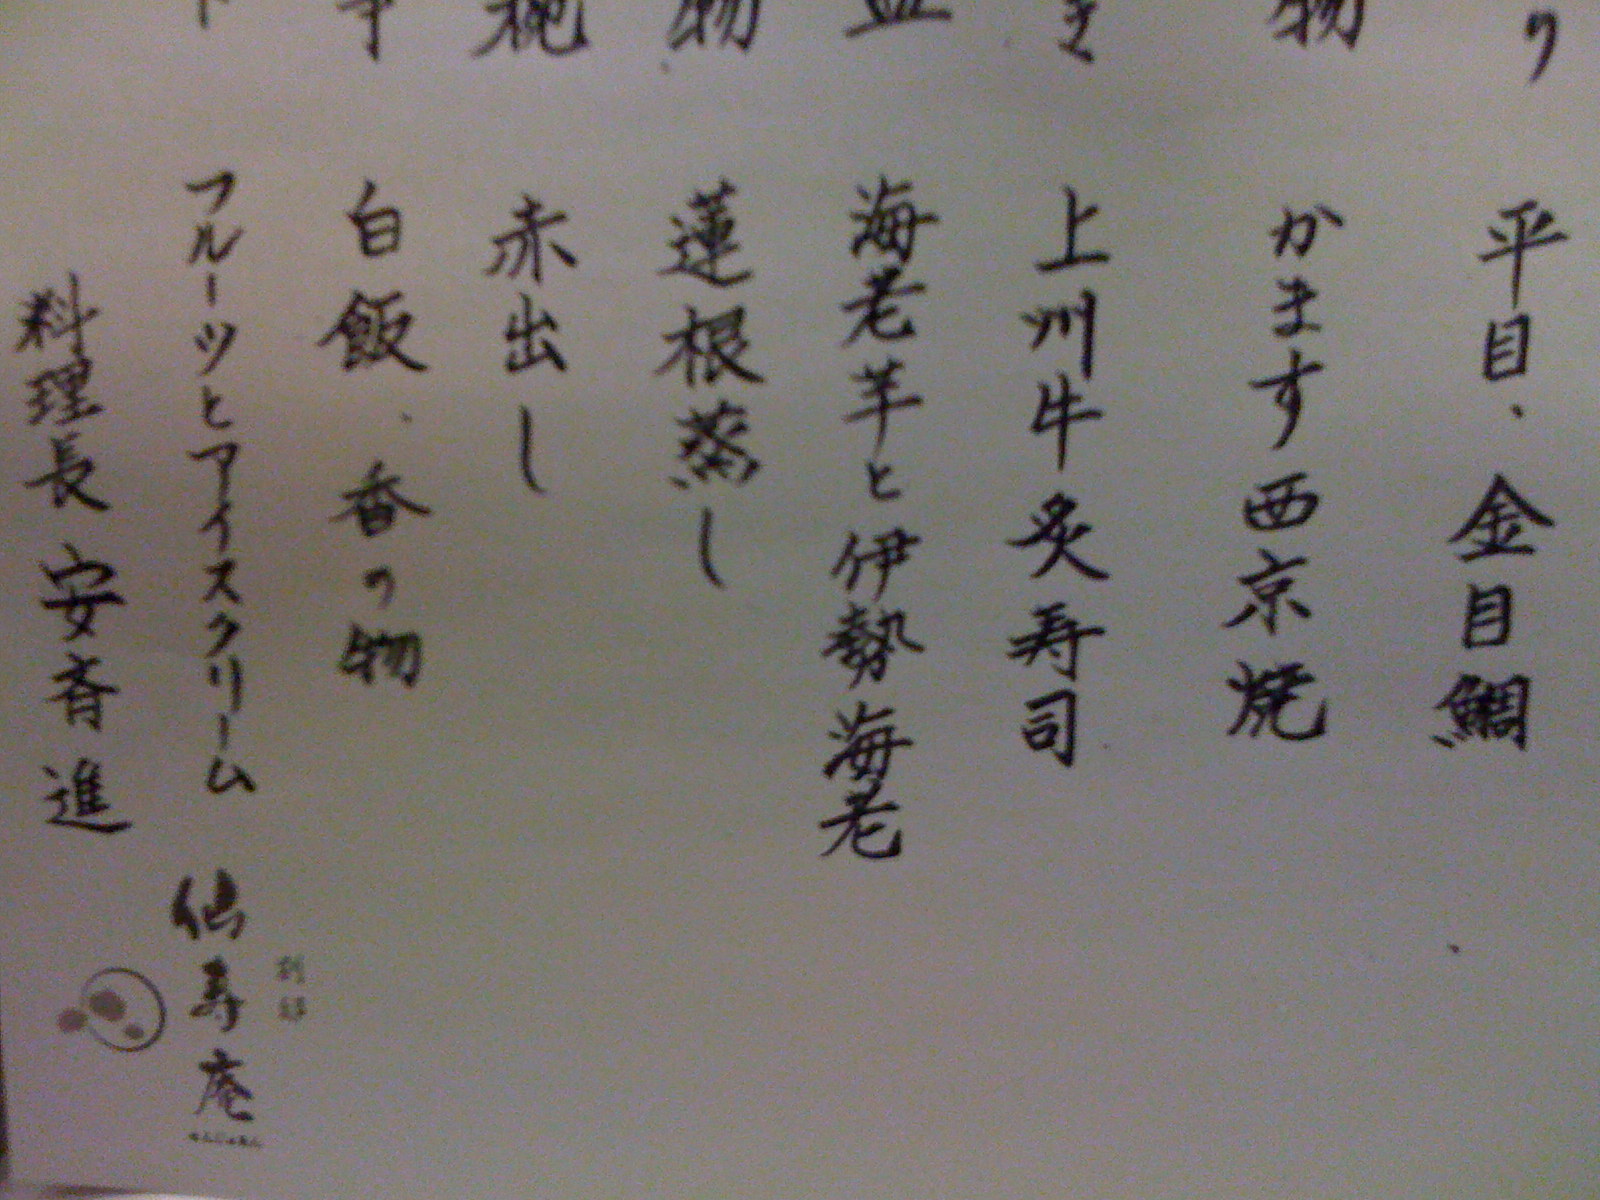 り 平目・金目鯛
物 かます西京焼
き 上州牛炙寿司
皿 海老芋と伊勢海老
物 蓮根蒸し
椀 赤出し
事 白飯・香の物
ト フルーツとアイスクリーム
料理長 安斉 進
別邸
仙寿庵
せんじゅあん